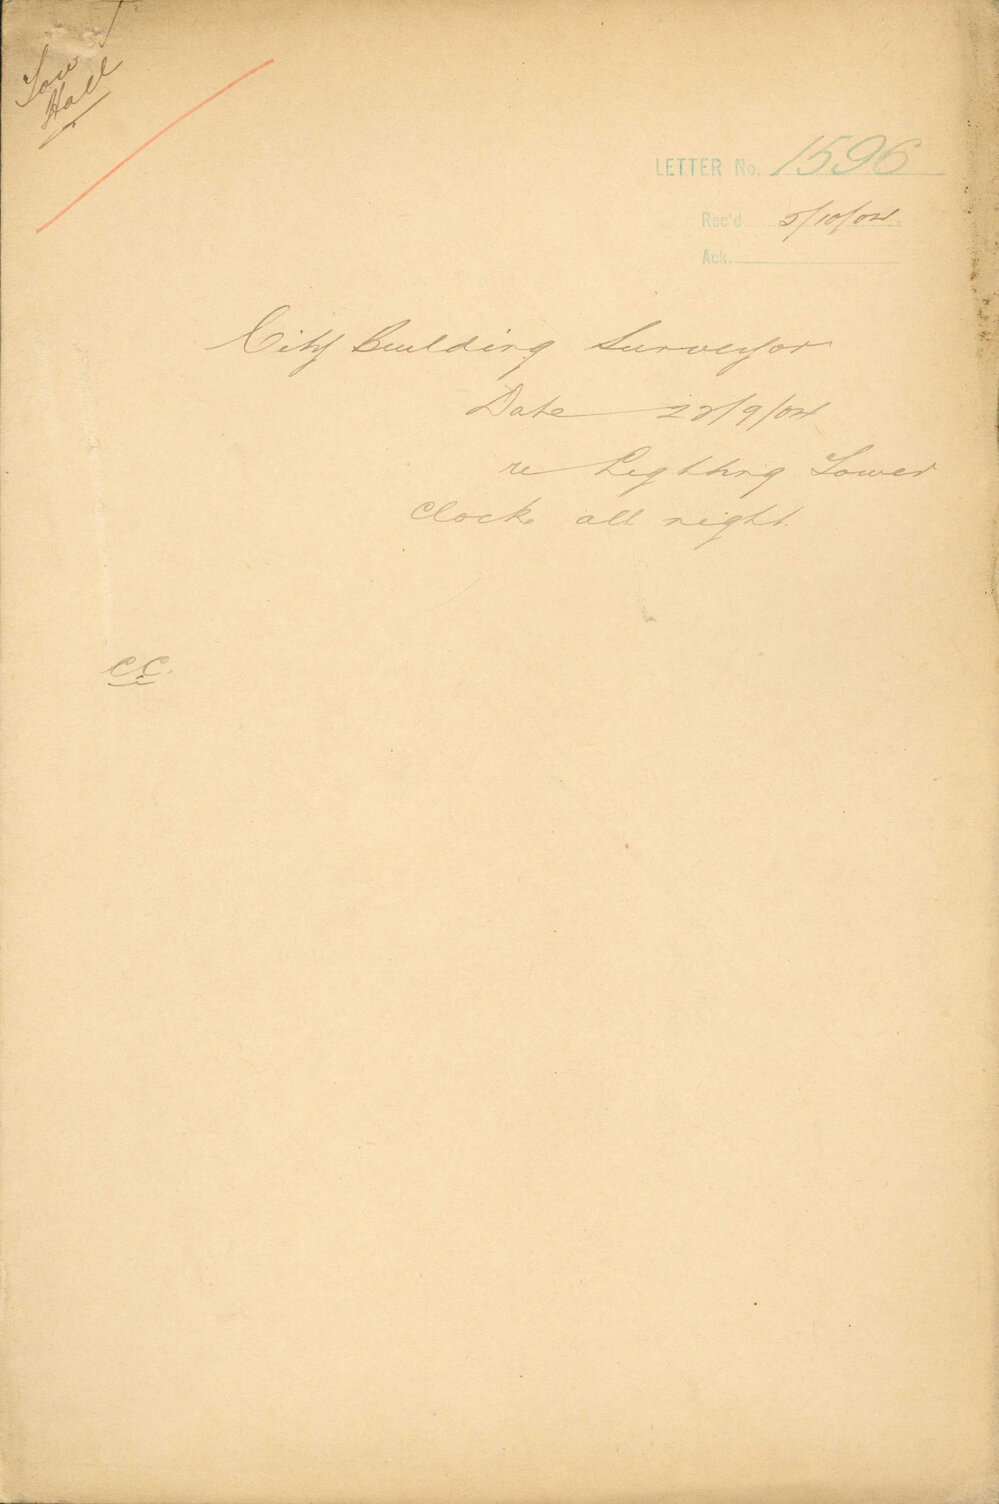 Town
Hall
LETTER No. 1596
Rec'd 5/10/04
Ack.
City Building Surveyor
Date 22/9/04
re Ligthing Tower
Clock all night.
C.C.